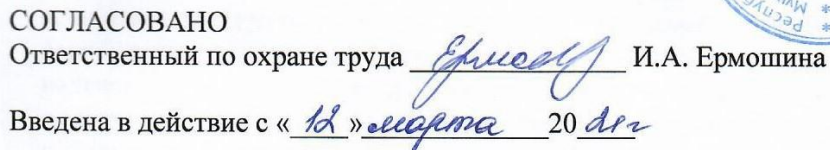 СОГЛАСОВАНО
Ответственный по охране труда Ермош И.А. Ермошина
Введена в действие с « 12 » марта 20 21г
Респу